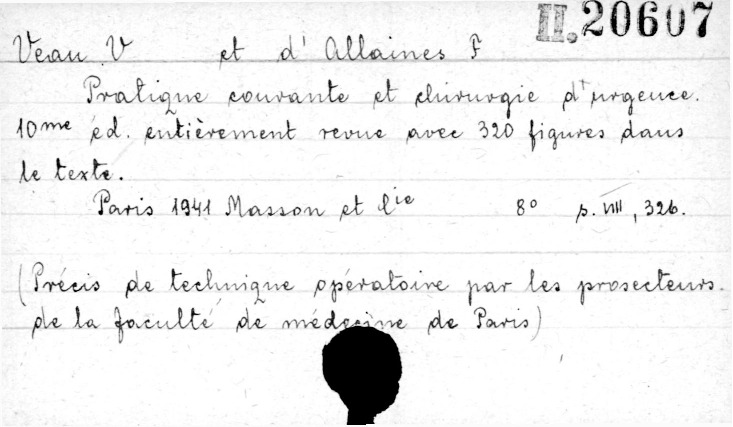 II. 20607
Veau V et d'Allaines F
Pratique courante et chirurgie d'urgence.
10me éd. entièrement revue avec 320 figures dans
le texte.
Paris 1941 Masson et Cie 8° p. VIII, 326.
(Précis de technique opératoire par les prosecteurs
de la faculté de médecine de Paris)